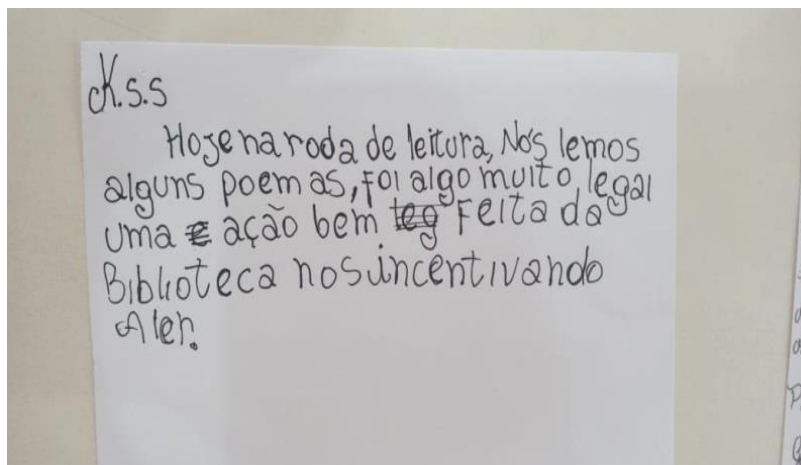 K.S.S
Hoje na roda de leitura, Nós lemos
alguns poemas, foi algo muito legal
uma ação bem feita da
Biblioteca nos incentivando
A ler.